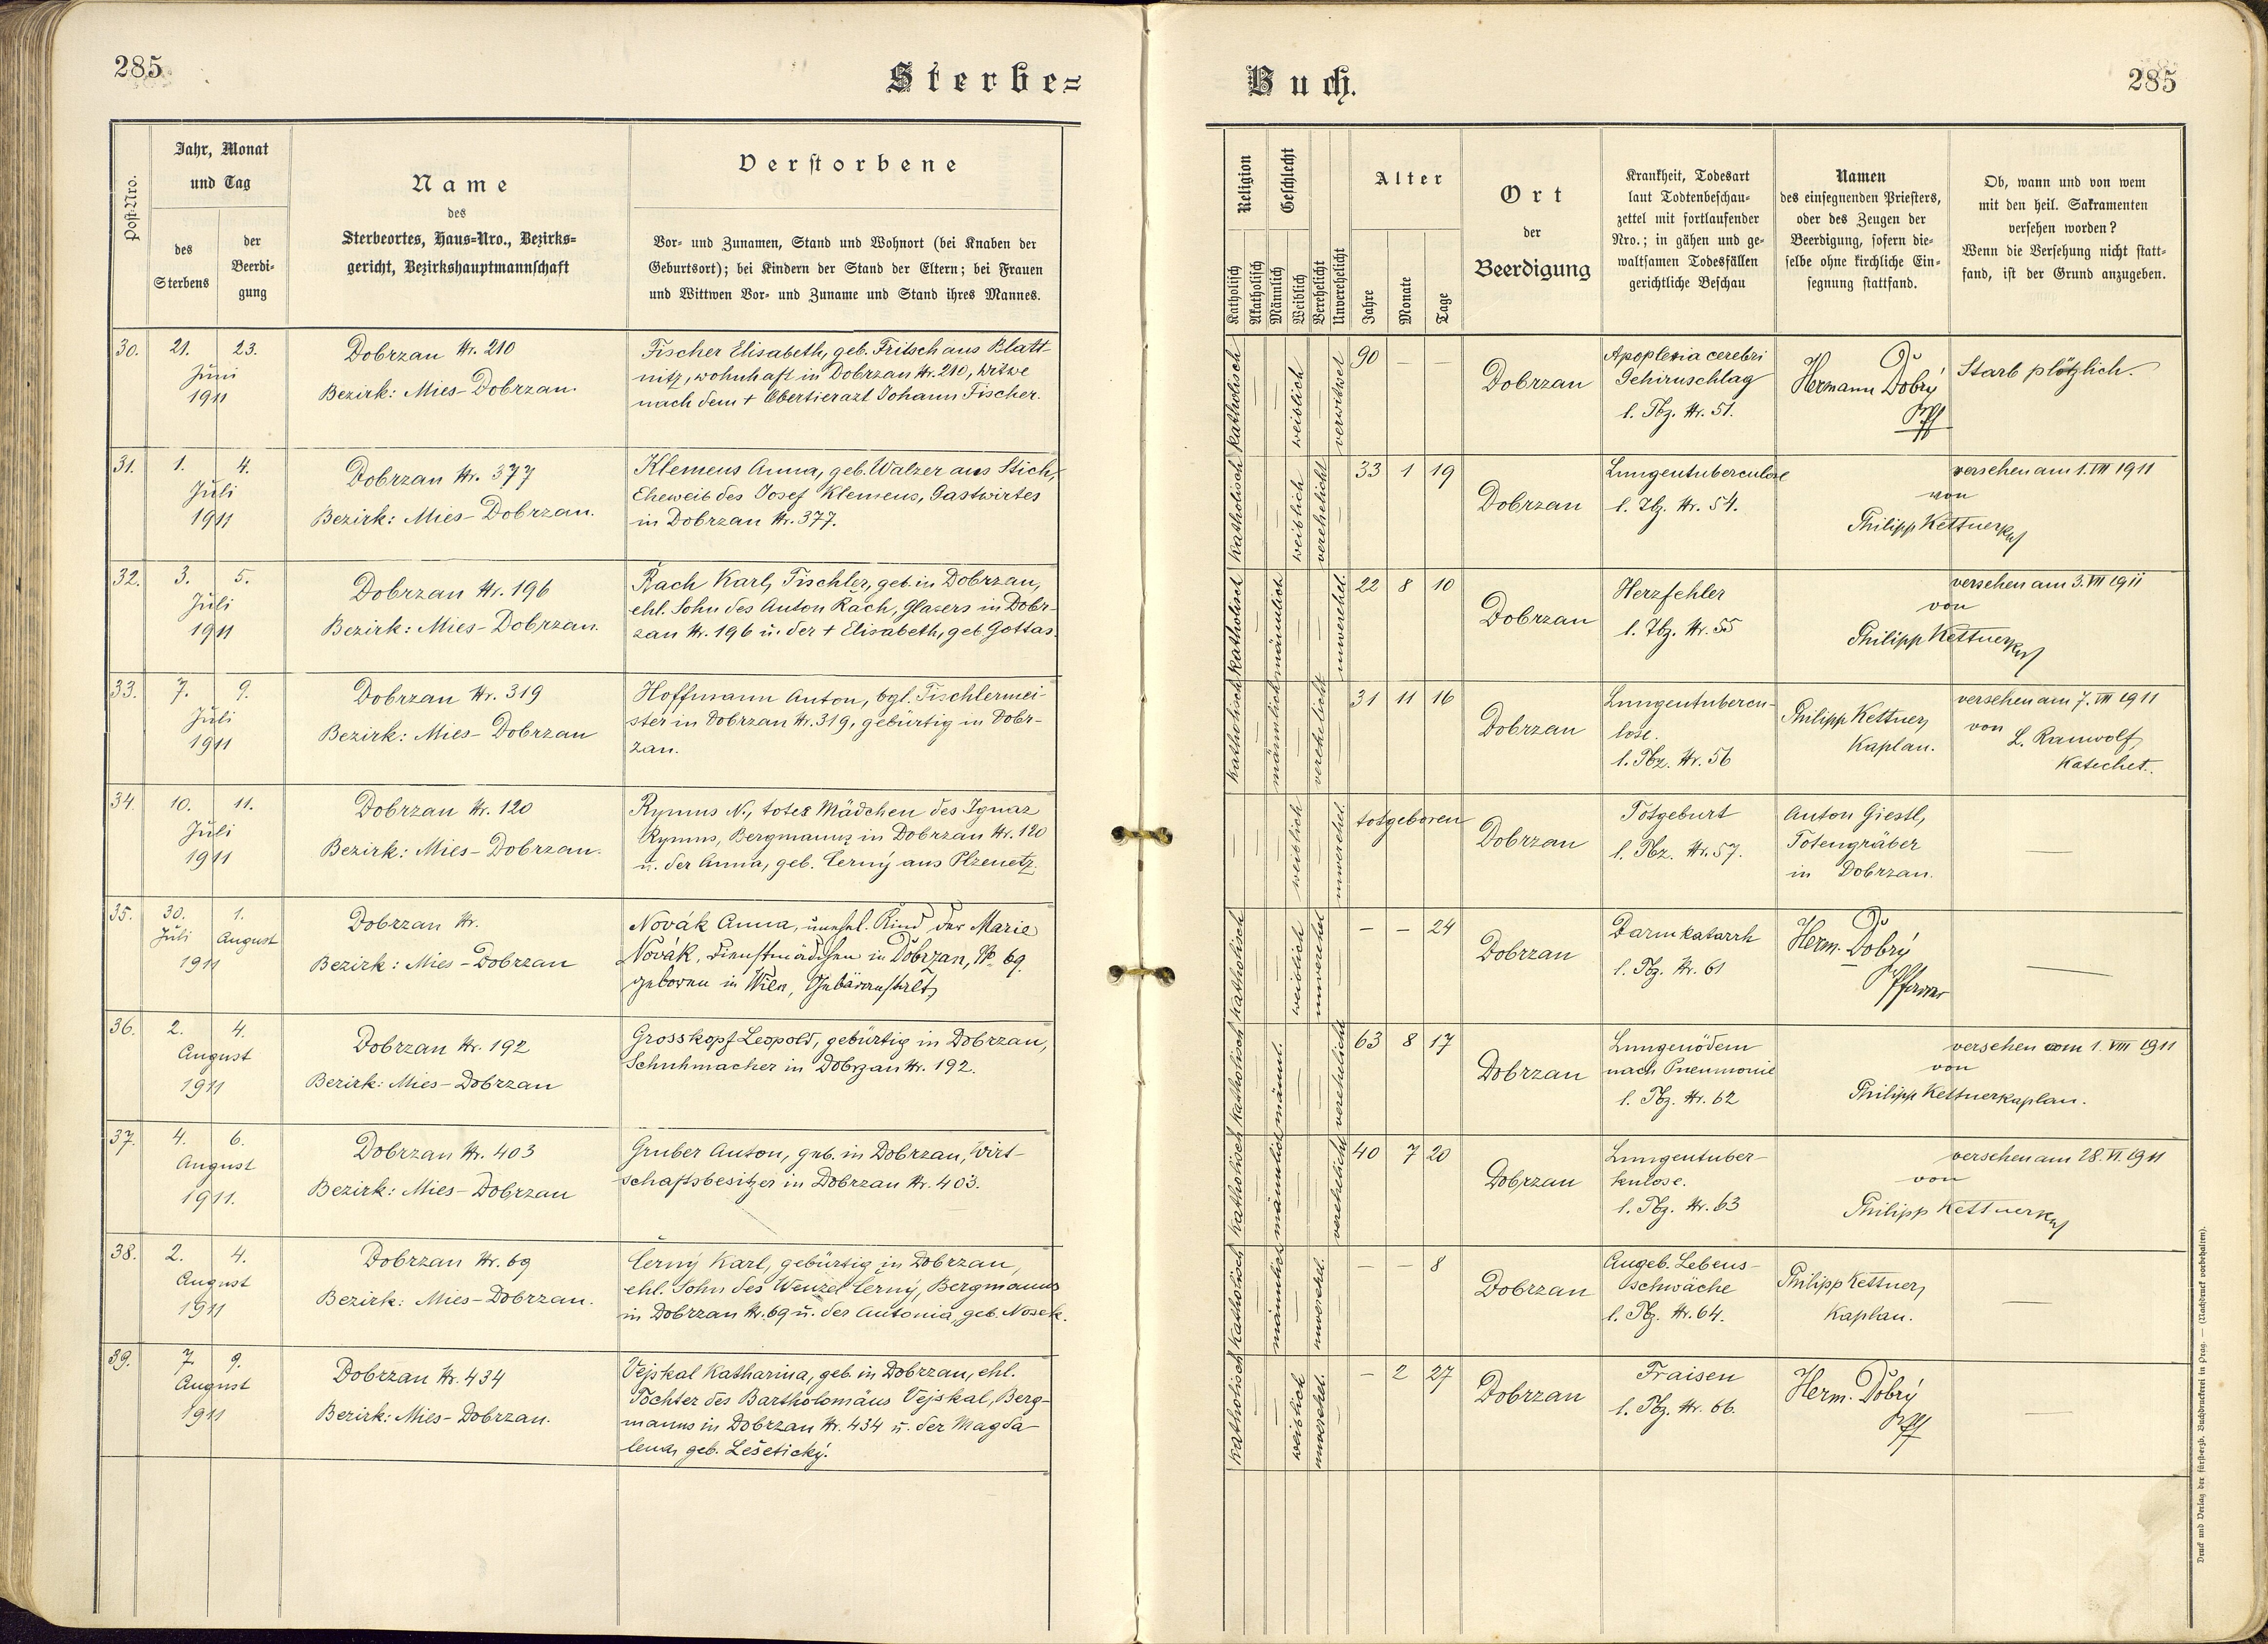 285
Sterbe=
Post-Nro.
Jahr, Monat
und Tag
des
Sterbens
der
Beerdi-
gung
Name
des
Sterbeortes, Haus=Nro., Bezirks=
gericht, Bezirkshauptmannschaft
Verstorbene
Vor- und Zunamen, Stand und Wohnort (bei Knaben der
Geburtsort); bei Kindern der Stand der Eltern; bei Frauen
und Wittwen Vor- und Zuname und Stand ihres Mannes.
30.
21.
23.
Juni
1911
Dobrzan Nr. 210
Bezirk: Mies-Dobrzan.
Fischer Elisabeth, geb. Fritsch aus Blatt-
nitz, wohnhaft in Dobrzan Nr. 210, Witwe
nach dem + Obertierarzt Johann Fischer.
31.
1.
4.
Juli
1911
Dobrzan Nr. 377
Bezirk: Mies-Dobrzan.
Klemens Anna, geb. Walzer aus Stich,
Eheweib des Josef Klemens, Gastwirtes
in Dobrzan Nr. 377.
32.
3.
5.
Juli
1911
Dobrzan Nr. 196
Bezirk: Mies-Dobrzan.
Rach Karl, Tischler, geb. in Dobrzan,
ehl. Sohn des Anton Rach, Glasers in Dobr-
zan Nr. 196 u. der + Elisabeth, geb. Gottas.
33.
7.
9.
Juli
1911
Dobrzan Nr. 319
Bezirk: Mies-Dobrzan
Hoffmann Anton, bgl. Tischlermei-
ster in Dobrzan Nr. 319, gebürtig in Dobr-
zan.
34.
10.
11.
Juli
1911
Dobrzan Nr. 120
Bezirk: Mies-Dobrzan.
Rymus N., totes Mädchen des Ignaz
Rymus, Bergmanns in Dobrzan Nr. 120
u. der Anna, geb. Černý aus Plzenetz.
35.
30.
1.
Juli
August
1911
Dobrzan Nr.
Bezirk: Mies-Dobrzan
Novák Anna, unehel. Kind der Marie
Novák, Dienstmädchen in Dobrzan, No 69.
geboren in Wien, Gebäranstalt,
36.
2.
4.
August
1911
Dobrzan Nr. 192
Bezirk: Mies-Dobrzan
Grosskopf Leopold, gebürtig in Dobrzan,
Schuhmacher in Dobrzan Nr. 192.
37.
4.
6.
August
1911.
Dobrzan Nr. 403
Bezirk: Mies-Dobrzan
Gruber Anton, geb. in Dobrzan, Wirt-
schaftsbesitzer in Dobrzan Nr. 403.
38.
2.
4.
August
1911
Dobrzan Nr. 69
Bezirk: Mies-Dobrzan.
Černý Karl, gebürtig in Dobrzan,
ehl. Sohn des Wenzel Černý, Bergmanns
in Dobrzan Nr. 69 u. der Antonia, geb. Nosek.
39.
7.
9.
August
1911
Dobrzan Nr. 434
Bezirk: Mies-Dobrzan.
Vejskal Katharina, geb. in Dobrzan, ehl.
Tochter des Bartholomäus Vejskal, Berg-
manns in Dobrzan Nr. 434 u. der Magda-
lena, geb. Lešetický.
Buch.
285
Religion
Geschlecht
Katholisch
Akatholisch
Männlich
Weiblich
Verehelicht
Unverehelicht
Alter
Jahre
Monate
Tage
Ort
der
Beerdigung
Krankheit, Todesart
laut Todtenbeschau-
zettel mit fortlaufender
Nro.; in gähen und ge-
waltsamen Todesfällen
gerichtliche Beschau
Namen
des einsegnenden Priesters,
oder des Zeugen der
Beerdigung, sofern die-
selbe ohne kirchliche Ein-
segnung stattfand.
Ob, wann und von wem
mit den heil. Sakramenten
versehen worden?
Wenn die Versehung nicht statt-
fand, ist der Grund anzugeben.
katholisch
weiblich
verwitwet
90 — —
Dobrzan
Apoplexia cerebri
Gehirnschlag
l. Tbz. Nr. 51.
Hermann Dobrý
Pff
Starb plötzlich.
katholisch
weiblich
verehelicht
33 1 19
Dobrzan
Lungentuberculose
l. Tbz. Nr. 54.
versehen am 1. VII 1911
von
Philipp Kettner
katholisch
männlich
unverehel.
22 8 10
Dobrzan
Herzfehler
l. Tbz. Nr. 55
versehen am 3. VII 1911
von
Philipp Kettner
katholisch
männlich
verehelicht
31 11 16
Dobrzan
Lungentubercu-
lose.
l. Tbz. Nr. 56
Philipp Kettner,
Kaplan.
versehen am 7. VII 1911
von L. Rauwolf,
Katechet.
weiblich
unverehel.
totgeboren
Dobrzan
Totgeburt
l. Tbz. Nr. 57.
Anton Giestl,
Totengräber
in Dobrzan.
—
katholisch
weiblich
unverehel
— — 24
Dobrzan
Darmkatarrh
l. Tbz. Nr. 61
Herm. Dobrý
Pfarrer
—
katholisch
männl.
verehelicht
63 8 17
Dobrzan
Lungenödem
nach Pneumonie
l. Tbz. Nr. 62
versehen am 1. VIII 1911
von
Philipp Kettner kaplan.
katholisch
männlich
verehelicht
40 7 20
Dobrzan
Lungentuber-
kulose.
l. Tbz. Nr. 63
versehen am 28. VI. 1911
von
Philipp Kettner
katholisch
männlich
unverehel.
— — 8
Dobrzan
Angeb. Lebens-
schwäche
l. Tbz. Nr. 64.
Philipp Kettner,
Kaplan.
—
katholisch
weiblich
unverehel.
— 2 27
Dobrzan
Fraisen
l. Tbz. Nr. 66.
Herm. Dobrý
Pff
—
Druck und Verlag der fürsterzb. Buchdruckerei in Prag. — (Nachdruck vorbehalten).